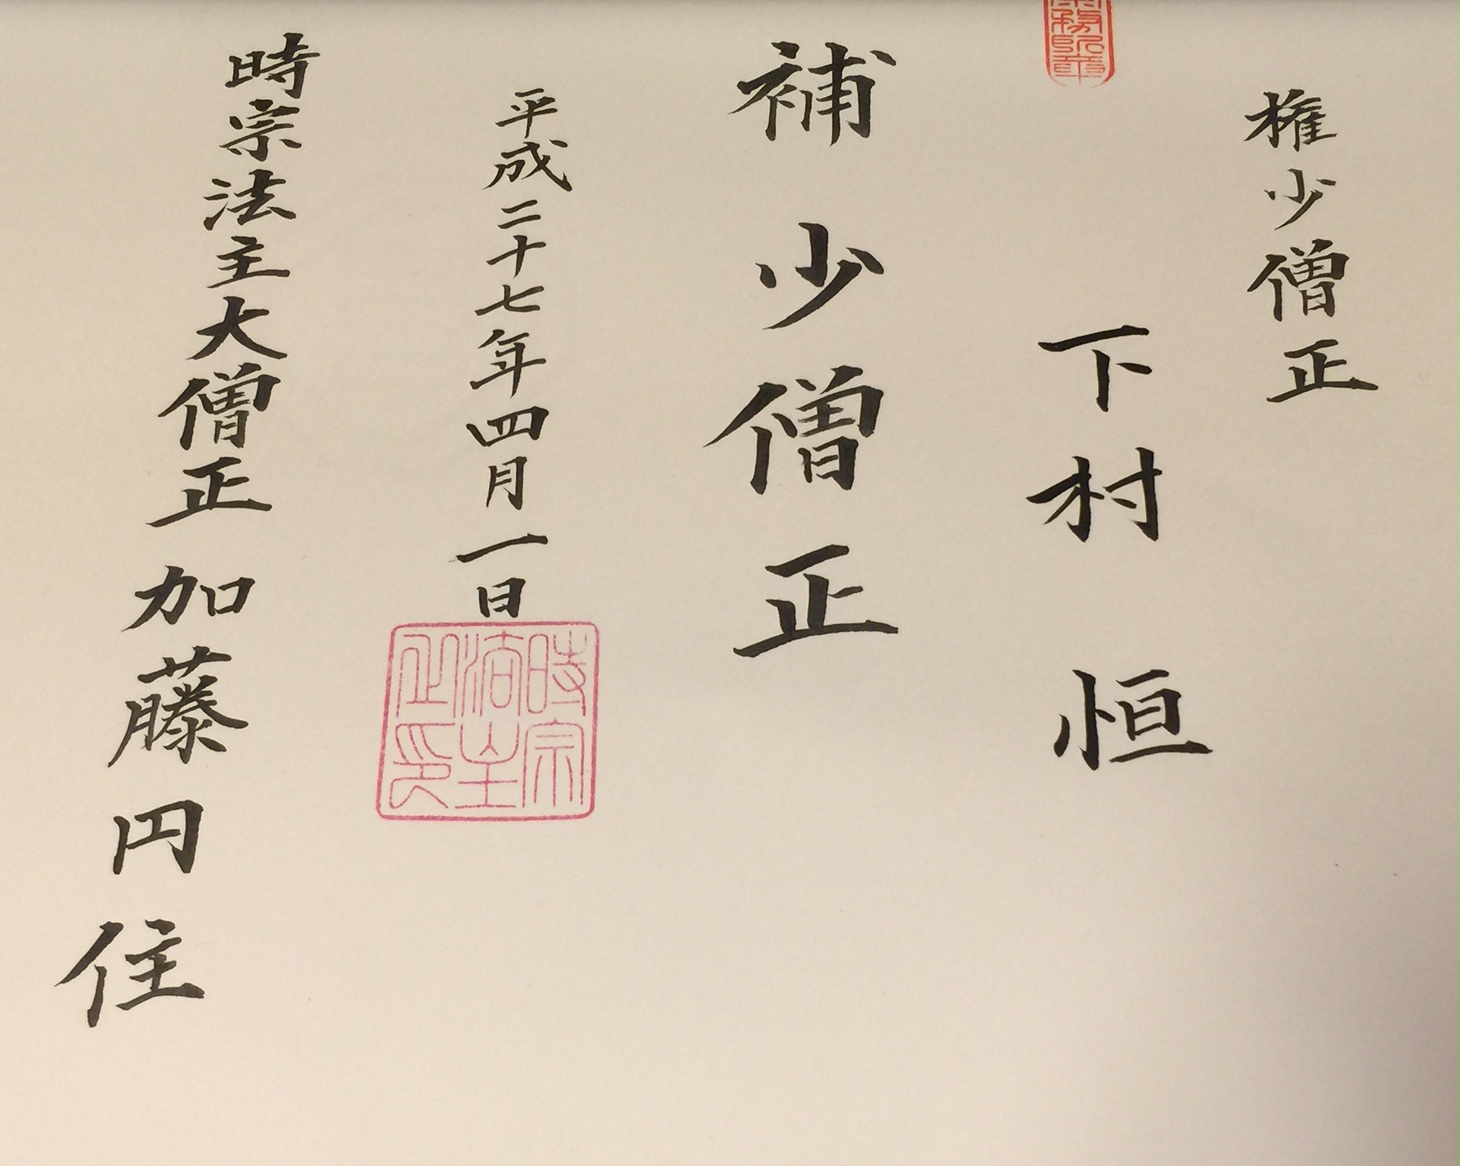 権少僧正
下村恒
補少僧正
平成二十七年四月一日
時宗法主之印
時宗法主大僧正加藤円住